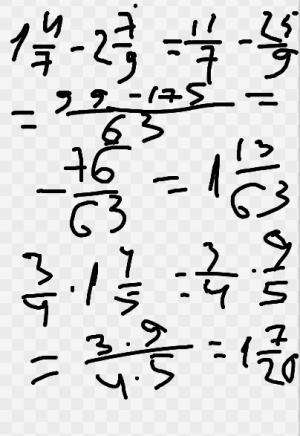 1 4/7 - 2 7/9 = 11/7 - 25/9
= 99 - 175/63 =
- 76/63 = 1 13/63
3/4 · 1 4/5 = 3/4 · 9/5
= 3 · 9/4 · 5 = 1 7/20